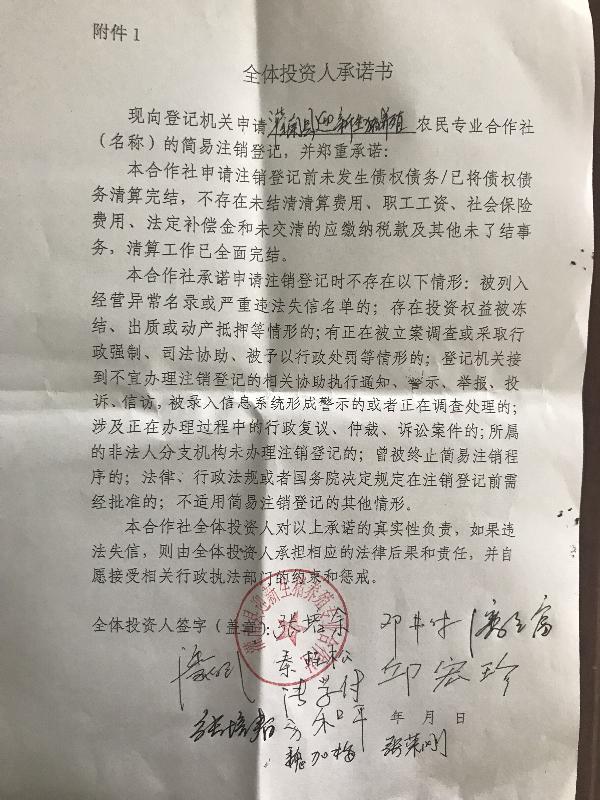 附件1
全体投资人承诺书
现向登记机关申请灌南县迎新生猪养殖农民专业合作社
（名称）的简易注销登记，并郑重承诺：
本合作社申请注销登记前未发生债权债务/已将债权债
务清算完结，不存在未结清清算费用、职工工资、社会保险
费用、法定补偿金和未交清的应缴纳税款及其他未了结事
务，清算工作已全面完结。
本合作社承诺申请注销登记时不存在以下情形：被列入
经营异常名录或严重违法失信名单的；存在投资权益被冻
结、出质或动产抵押等情形的；有正在被立案调查或采取行
政强制、司法协助、被予以行政处罚等情形的；登记机关接
到不宜办理注销登记的相关协助执行通知、警示、举报、投
诉、信访，被录入信息系统形成警示的或者正在调查处理的；
涉及正在办理过程中的行政复议、仲裁、诉讼案件的；所属
的非法人分支机构未办理注销登记的；曾被终止简易注销程
序的；法律、行政法规或者国务院决定规定在注销登记前需
经批准的；不适用简易注销登记的其他情形。
本合作社全体投资人对以上承诺的真实性负责，如果违
法失信，则由全体投资人承担相应的法律后果和责任，并自
愿接受相关行政执法部门的约束和惩戒。
全体投资人签字（盖章）：
秦松
邱宏珍
年 月 日
魏加梅
张荣刚